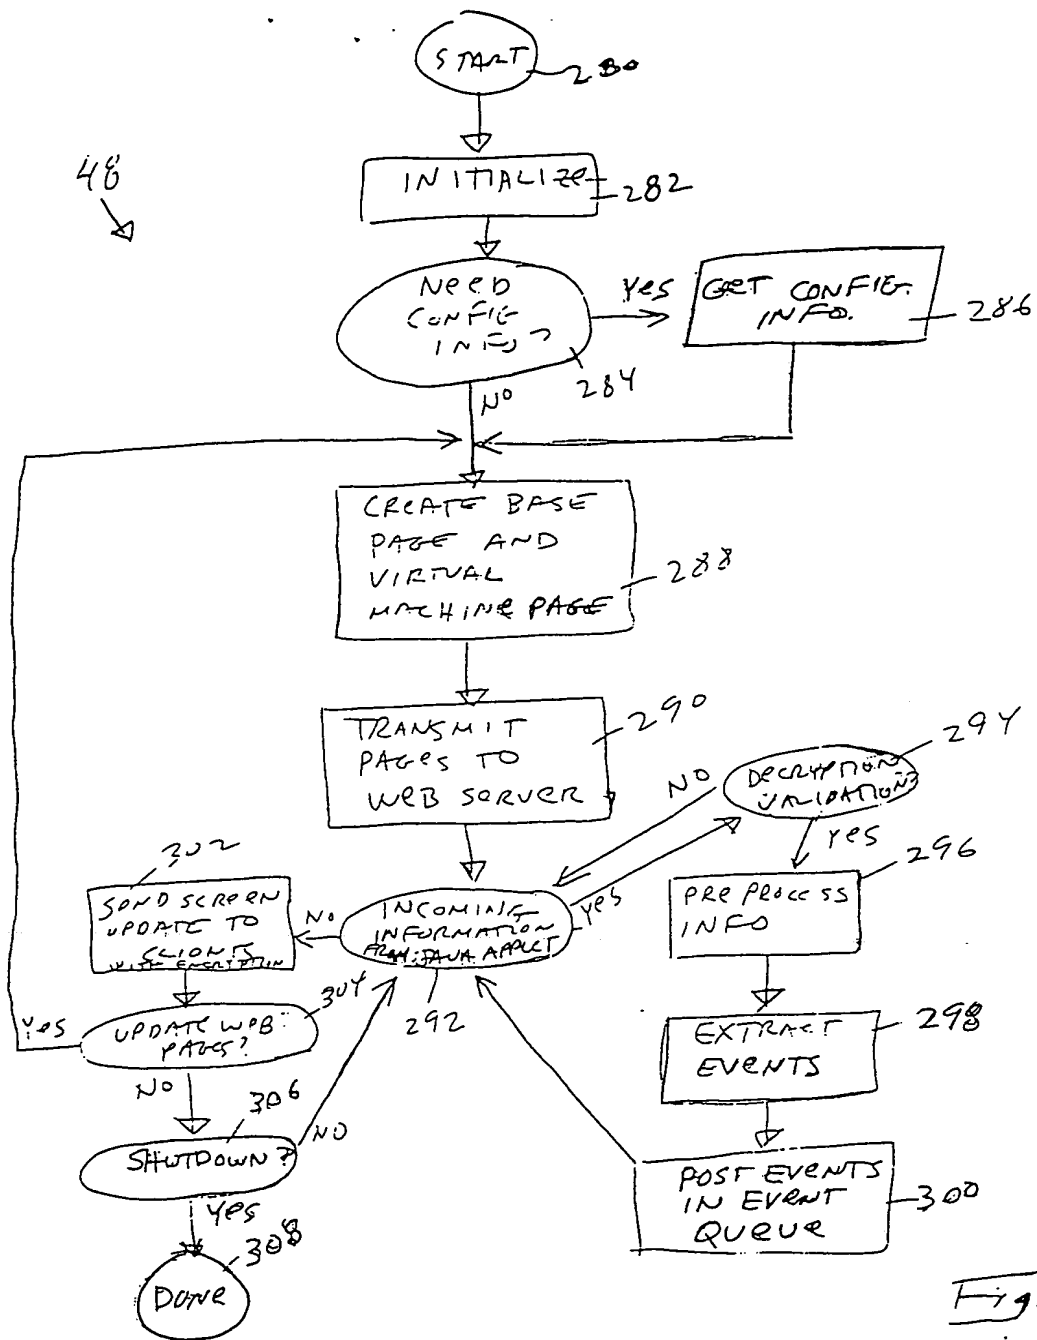 START
280
48
INITIALIZE
282
NEED
CONFIG
INFO?
284
YES
GET CONFIG.
INFO.
286
NO
CREATE BASE
PAGE AND
VIRTUAL
MACHINE PAGE
288
TRANSMIT
PAGES TO
WEB SERVER
290
DECRYPTION
VALIDATION?
294
NO
YES
YES
INCOMING
INFORMATION
FROM JAVA APPLET
292
NO
302
SEND SCREEN
UPDATE TO
CLIENTS
WITH ENCRYPTION
PREPROCESS
INFO
296
UPDATE WEB
PAGES?
304
YES
NO
EXTRACT
EVENTS
298
SHUTDOWN?
306
NO
YES
POST EVENTS
IN EVENT
QUEUE
300
DONE
308
Fig.